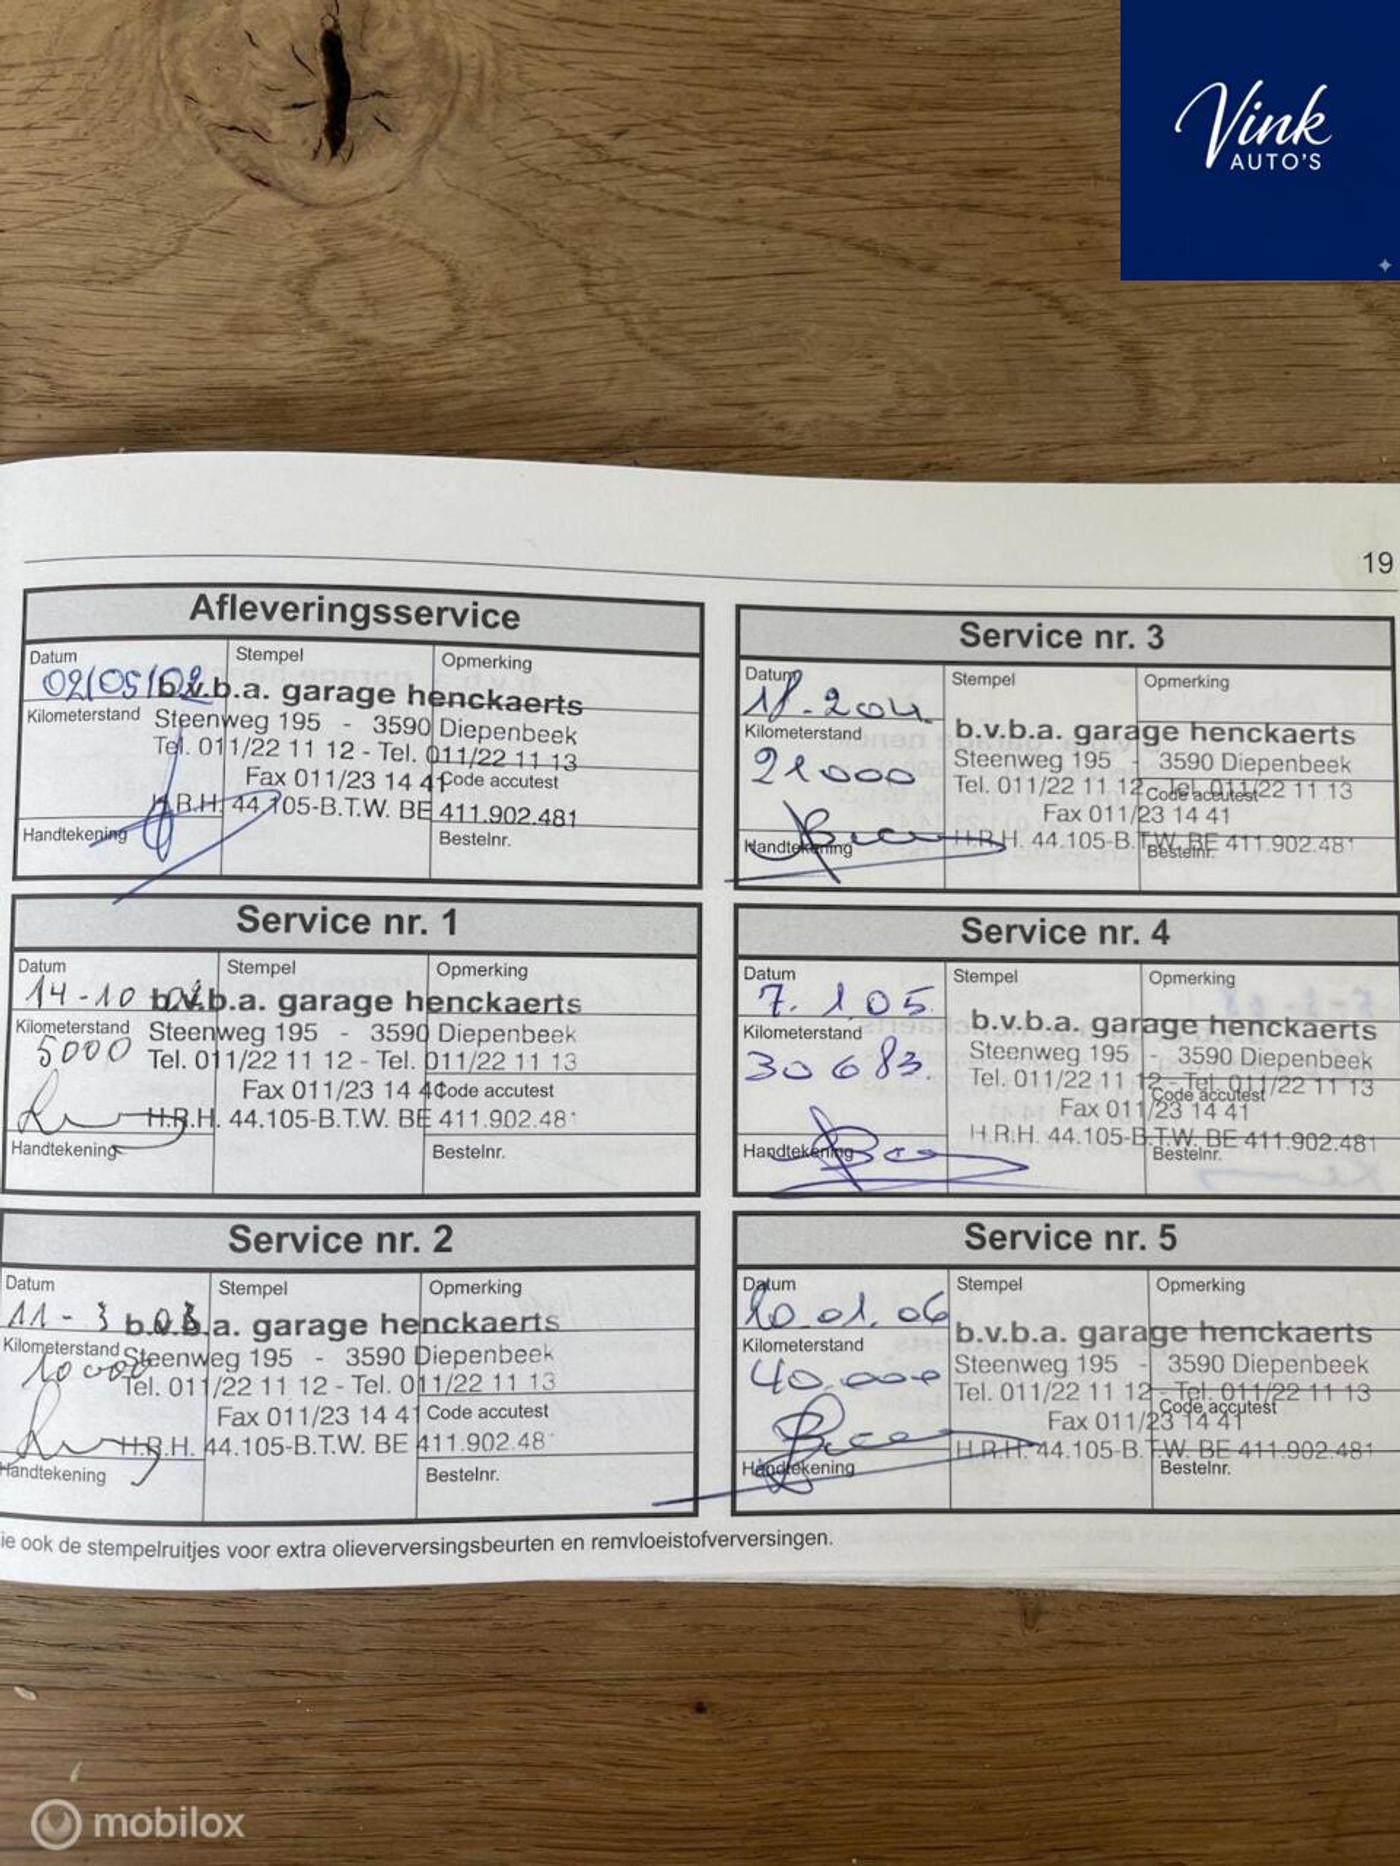 Vink
AUTO'S
19
Afleveringsservice
Datum Stempel Opmerking
02/05/02
b.v.b.a. garage henckaerts
Kilometerstand
Steenweg 195 - 3590 Diepenbeek
Tel. 011/22 11 12 - Tel. 011/22 11 13
Fax 011/23 14 41
Code accutest
H.R.H. 44.105-B.T.W. BE 411.902.481
Handtekening
Bestelnr.
Service nr. 1
Datum Stempel Opmerking
14-10
b.v.b.a. garage henckaerts
Kilometerstand
5000
Steenweg 195 - 3590 Diepenbeek
Tel. 011/22 11 12 - Tel. 011/22 11 13
Fax 011/23 14 4
Code accutest
H.R.H. 44.105-B.T.W. BE 411.902.481
Handtekening
Bestelnr.
Service nr. 2
Datum Stempel Opmerking
11-3 03
b.v.b.a. garage henckaerts
Kilometerstand
10000
Steenweg 195 - 3590 Diepenbeek
Tel. 011/22 11 12 - Tel. 011/22 11 13
Fax 011/23 14 41
Code accutest
H.R.H. 44.105-B.T.W. BE 411.902.48
Handtekening
Bestelnr.
Service nr. 3
Datum Stempel Opmerking
Kilometerstand
21000
b.v.b.a. garage henckaerts
Steenweg 195 - 3590 Diepenbeek
Tel. 011/22 11 12 - Tel. 011/22 11 13
Code accutest
Fax 011/23 14 41
H.R.H. 44.105-B.T.W. BE 411.902.481
Handtekening
Bestelnr.
Service nr. 4
Datum Stempel Opmerking
7.1.05.
Kilometerstand
30683.
b.v.b.a. garage henckaerts
Steenweg 195 - 3590 Diepenbeek
Tel. 011/22 11 12 - Tel. 011/22 11 13
Code accutest
Fax 011/23 14 41
H.R.H. 44.105-B.T.W. BE 411.902.481
Handtekening
Bestelnr.
Service nr. 5
Datum Stempel Opmerking
10.01.06
Kilometerstand
40.000
b.v.b.a. garage henckaerts
Steenweg 195 - 3590 Diepenbeek
Tel. 011/22 11 12 - Tel. 011/22 11 13
Code accutest
Fax 011/23 14 41
H.R.H. 44.105-B.T.W. BE 411.902.481
Handtekening
Bestelnr.
ie ook de stempelruitjes voor extra olieverversingsbeurten en remvloeistofverversingen.
mobilox